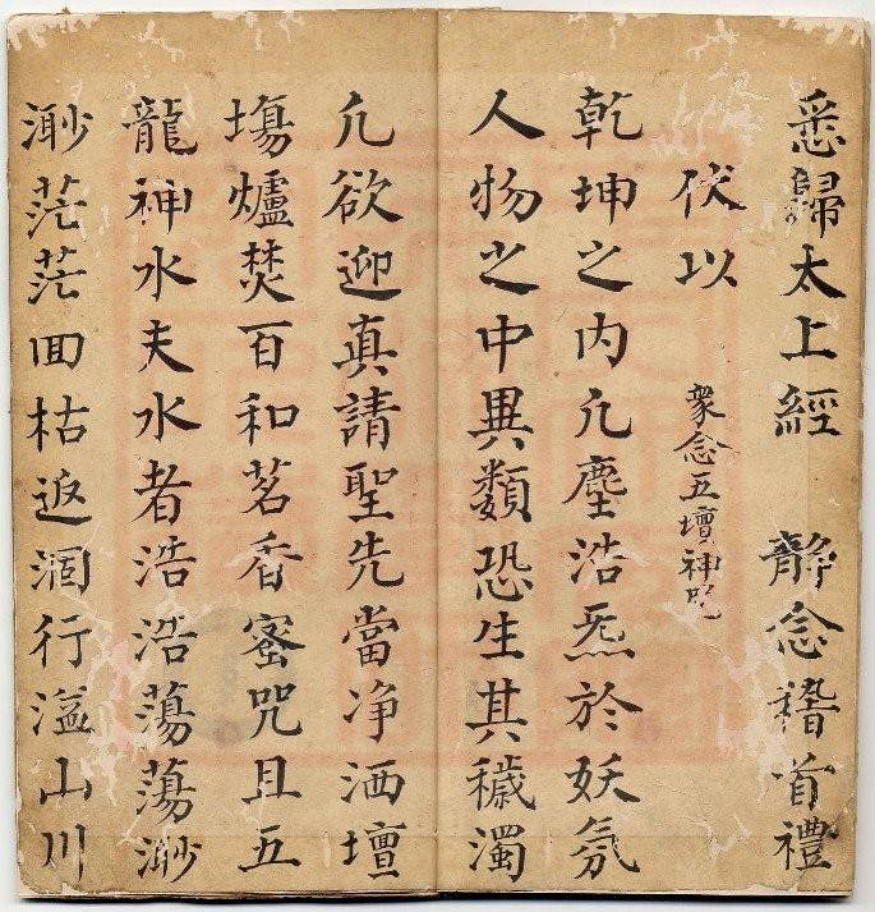 悉歸太上經　靜念稽首禮
伏以
衆念五壇神咒
乾坤之内凢塵浩炁於妖氛
人物之中異類恐生其穢濁
凢欲迎真請聖先當净洒壇
塲爐焚百和茗香蜜咒且五
龍神水夫水者浩浩蕩蕩渺
渺茫茫囬枯返涸行溢山川